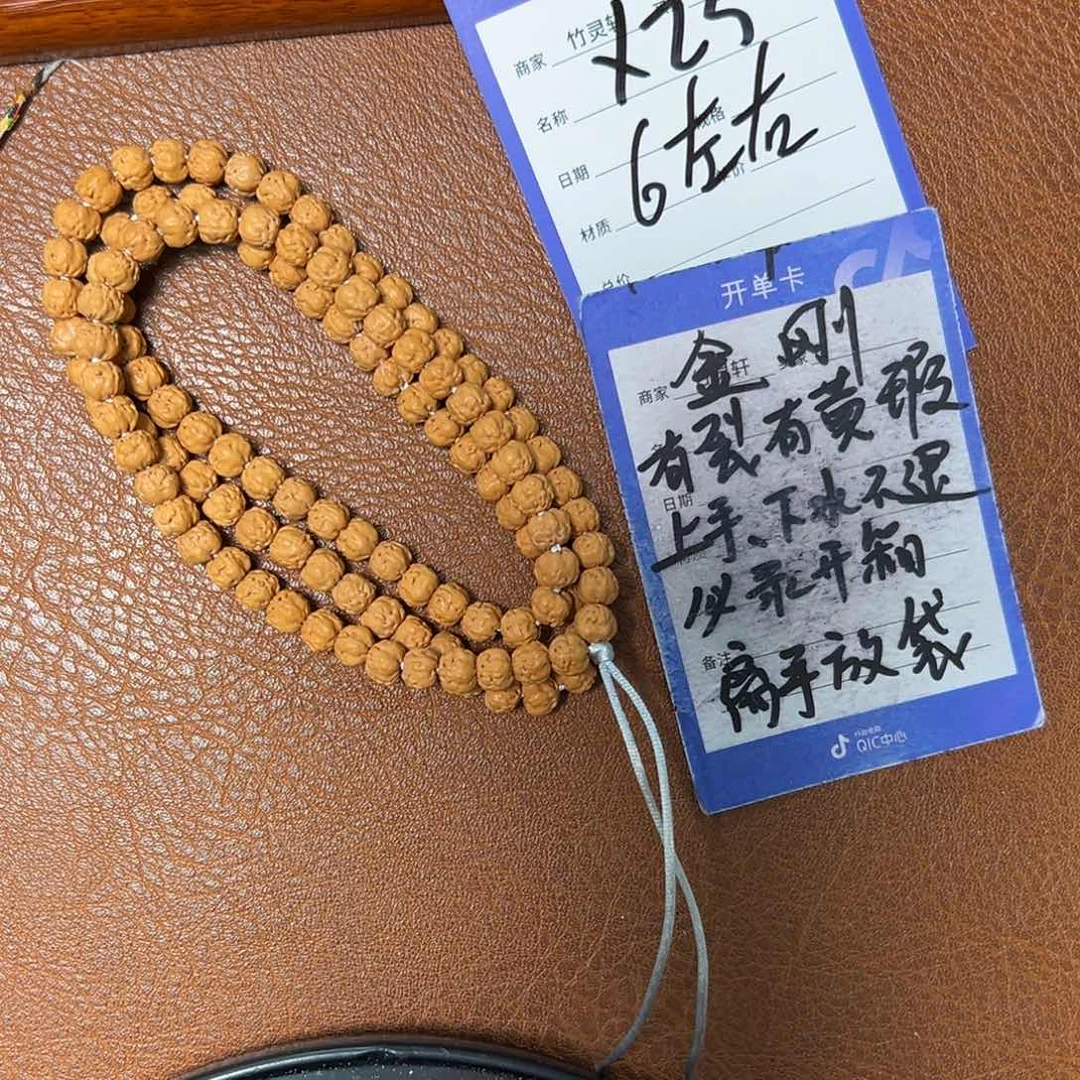 商家 竹灵轩
X25
名称
6左右
日期
材质
总价
开单卡
金刚
商家 轩
有裂有黄瑕
日期
上手、下水不退
必录开箱
备注
离手放袋
抖音电商
QIC中心